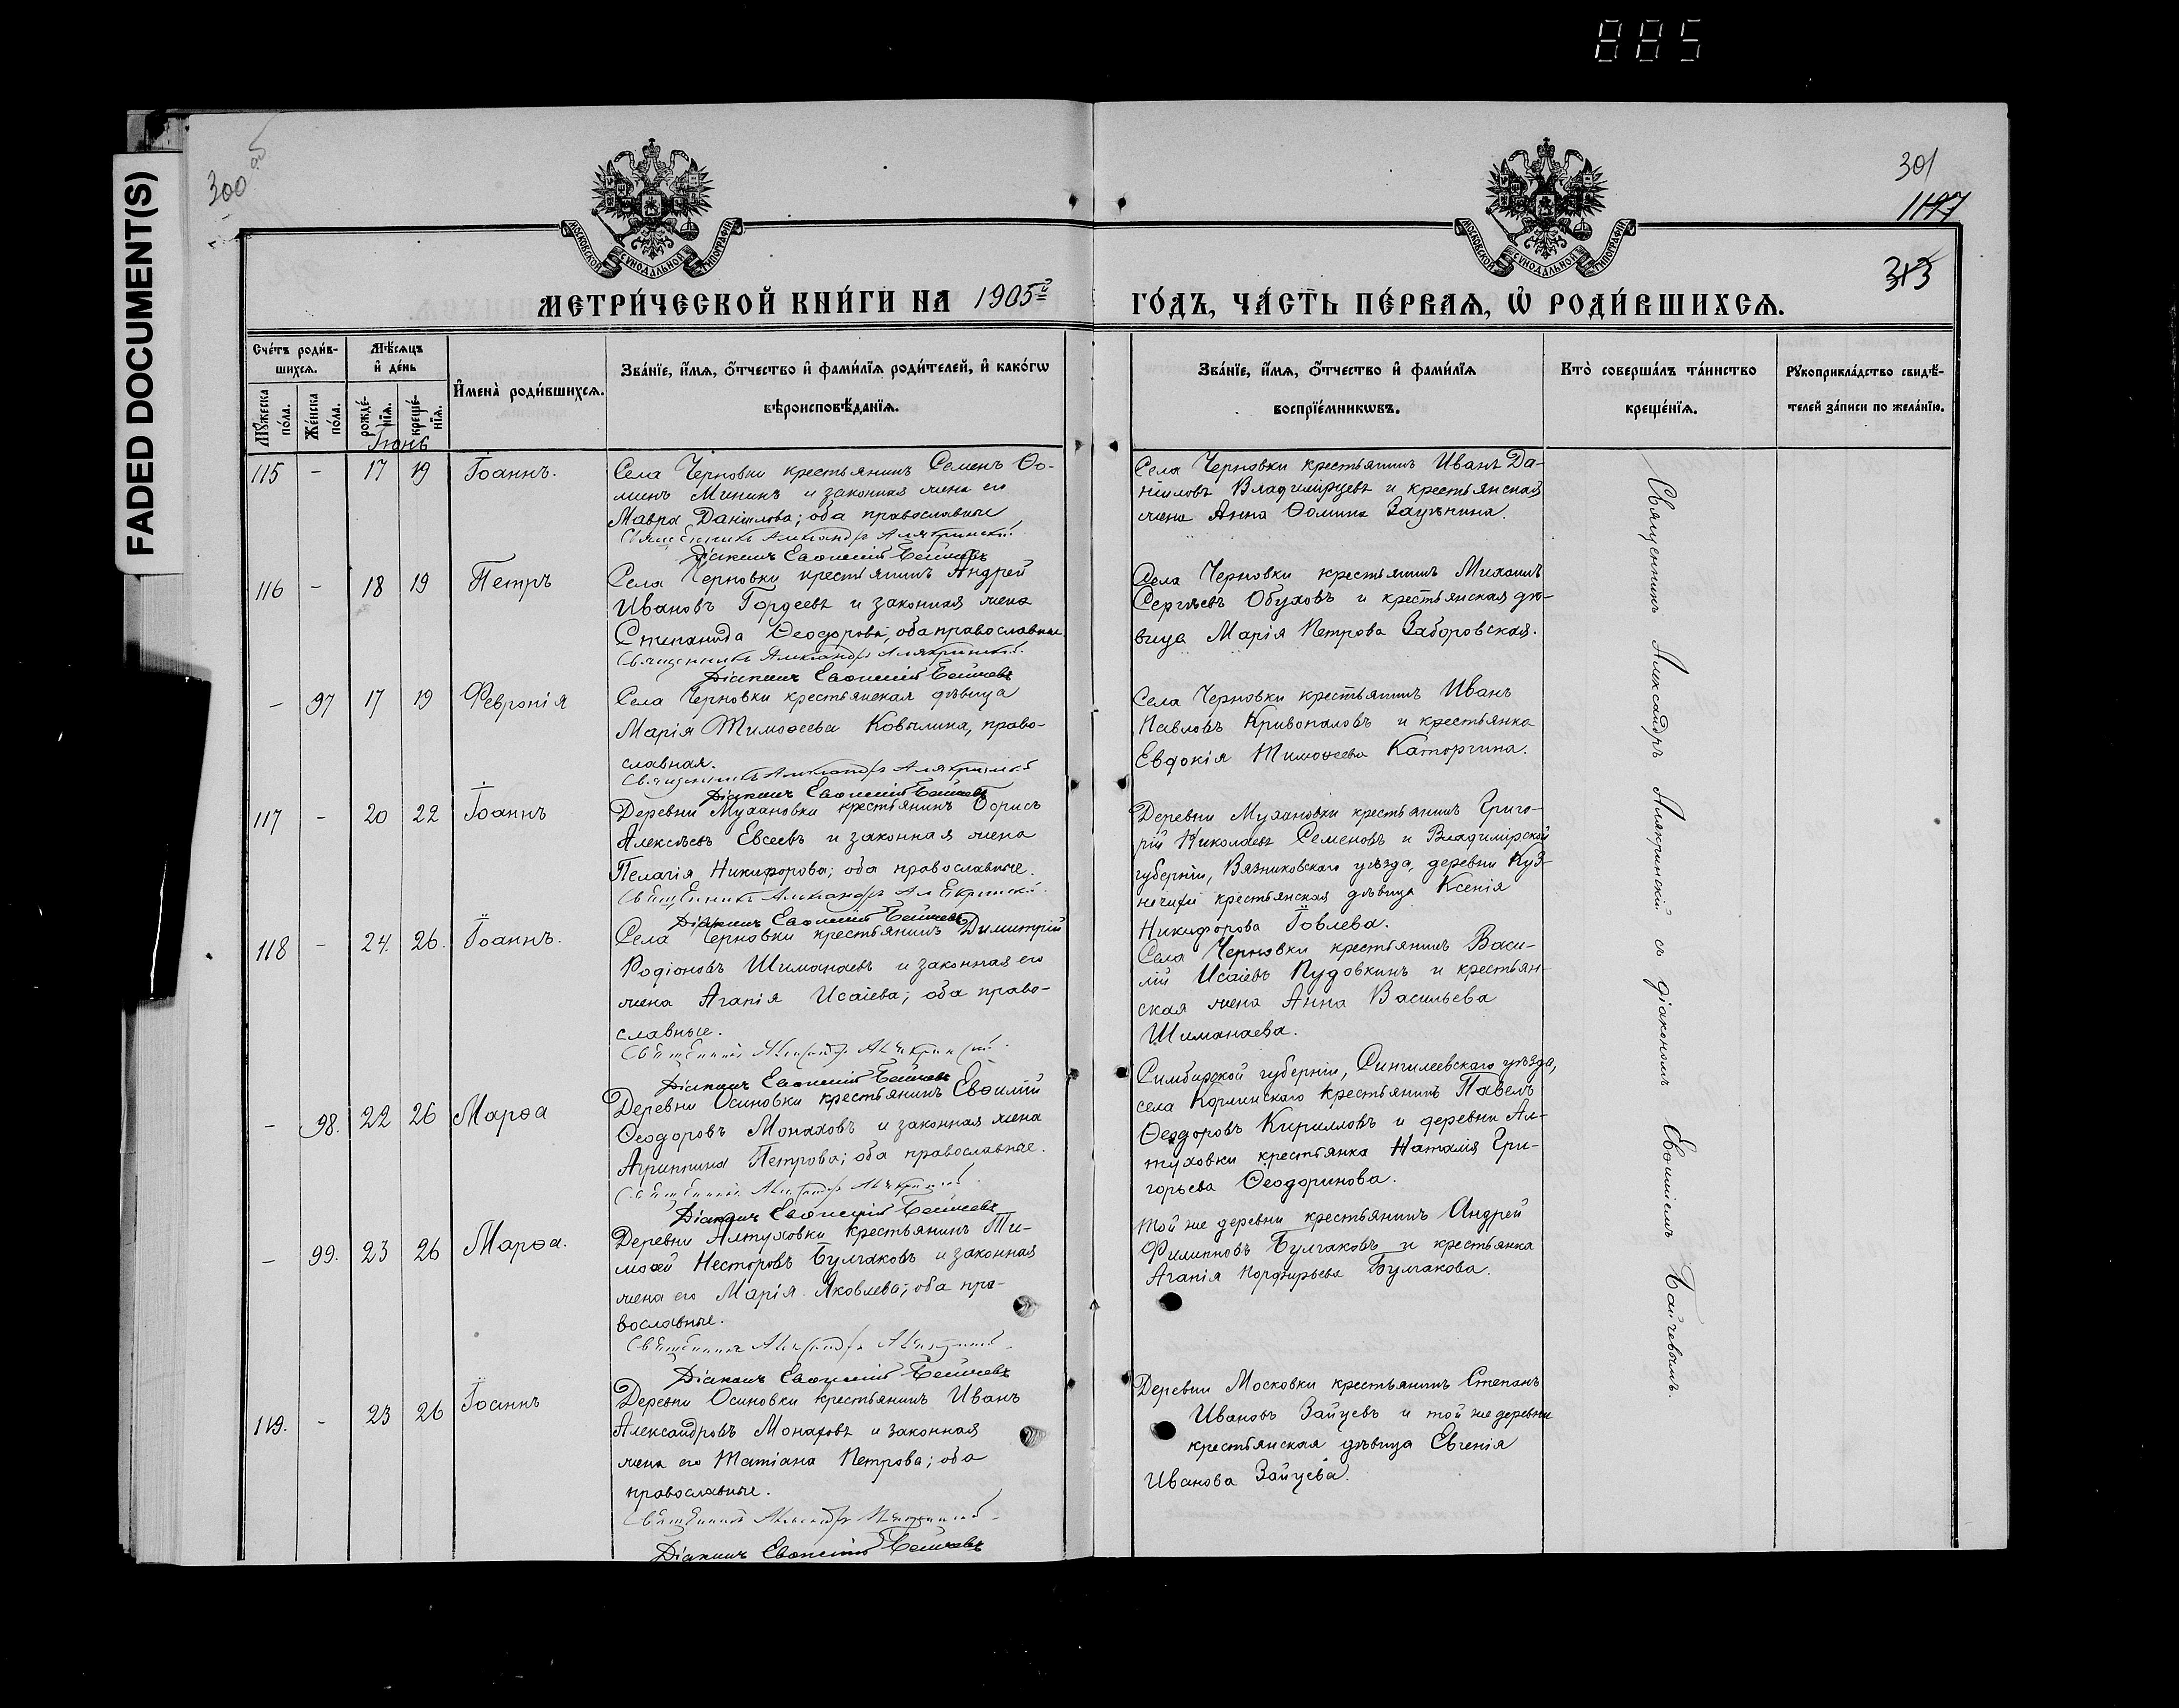 885
FADED DOCUMENT(S)
300 об
301
1197
313
МОСКОВСКОЙ СѴНОДАЛЬНОЙ ТИПОГРАФІИ
МОСКОВСКОЙ СѴНОДАЛЬНОЙ ТИПОГРАФІИ
МЕТРИ́ЧЕСКОЙ КНИ́ГИ НА 1905й
ГО́ДЪ, ЧА́СТЬ ПЕ́РВАѦ, Ѡ҆ РОДИ́ВШИХСѦ.
Сче́тъ роди́в-
шихсѧ.
Мꙋ́жеска по́ла.
Же́нска по́ла.
Мѣ́сѧцъ
и҆ де́нь
рожде́-
нїѧ.
креще́-
нїѧ.
И҆мена̀ роди́вшихсѧ.
Зва́нїе, и҆́мѧ, ѻ҆́тчество и҆ фами́лїѧ роди́телей, и҆ како́гѡ
вѣроисповѣ́данїѧ.
Зва́нїе, и҆́мѧ, ѻ҆́тчество и҆ фами́лїѧ
воспрїе́мникѡвъ.
Кто̀ соверша́лъ та́инство
креще́нїѧ.
Рꙋкоприкла́дство свидѣ́-
телей за́писи по жела́нїю.
Іюнь
115 - 17 19 Іоаннъ.
Села Черновки крестьянинъ Семенъ Ѳо-
минъ Мининъ и законная жена его
Мавра Данилова; оба православные
Священникъ Александръ Алякринскій
Діаконъ Евѳимій Байчевъ
Села Черновки крестьянинъ Иванъ Да-
ніиловъ Владимірцевъ и крестьянская
жена Анна Ѳомина
116 - 18 19 Петръ
Села Черновки крестьянинъ Андрей
Ивановъ Гордеевъ и законная жена
Степанида Ѳеодорова; оба православные
Священникъ Александръ Алякринскій
Діаконъ Евѳимій Байчевъ
Села Черновки крестьянинъ Михаилъ
Сергѣевъ Обуховъ и крестьянская дѣ-
вица Марія Петрова Заборовская.
- 97 17 19 Февронія
Села Черновки крестьянская дѣвица
Марія Тимоѳеева Ковылина, право-
славная.
Священникъ Александръ Алякринскій
Діаконъ Евѳимій Байчевъ
Села Черновки крестьянинъ Иванъ
Павловъ Кривопаловъ и крестьянка
Евдокія Тимоѳеева Каторгина.
117 - 20 22 Іоаннъ
Деревни Мухановки крестьянинъ Борисъ
Алексѣевъ Евсеевъ и законная жена
Пелагія Никифорова; оба православные.
Священникъ Александръ Алякринскій
Діаконъ Евѳимій Байчевъ
Деревни Мухановки крестьянинъ Григо-
рій Николаевъ Семеновъ и Владимірской
губерніи, Вязниковскаго уѣзда, деревни Куз-
нечихи крестьянская дѣвица Ксенія
Никифорова Іовлева.
118 - 24. 26. Іоаннъ.
Села Черновки крестьянинъ Димитрій
Родіоновъ Шиманаевъ и законная его
жена Агапія Исаіева; оба право-
славные.
Священникъ Александръ Алякринскій
Діаконъ Евѳимій Байчевъ
Села Черновки крестьянинъ Васи-
лій Исаіевъ Пудовкинъ и крестьян-
ская жена Анна Васильева
Шиманаева.
- 98. 22 26 Марѳа
Деревни Осиновки крестьянинъ Евѳимій
Ѳеодоровъ Монаховъ и законная жена
Агриппина Петрова; оба православные.
Священникъ Александръ Алякринскій
Діаконъ Евѳимій Байчевъ
Симбирской губерніи, Сингилеевскаго уѣзда,
села крестьянинъ Павелъ
Ѳеодоровъ Кирилловъ и деревни Ал-
туховки крестьянка Наталія Гри-
горьева Ѳеодоринова.
- 99. 23 26 Марѳа.
Деревни Алтуховки крестьянинъ Ти-
моѳей Несторовъ Булгаковъ и законная
жена его Марія Яковлева; оба пра-
вославные.
Священникъ Александръ Алякринскій
Діаконъ Евѳимій Байчевъ
той же деревни крестьянинъ Андрей
Филипповъ Булгаковъ и крестьянка
Агапія Порфирьева Булгакова.
119. - 23 26 Іоаннъ
Деревни Осиновки крестьянинъ Иванъ
Александровъ Монаховъ и законная
жена его Татіана Петрова; оба
православные.
Священникъ Александръ Алякринскій
Діаконъ Евѳимій Байчевъ
Деревни Московки крестьянинъ Степанъ
Ивановъ Зайцевъ и той же деревни
крестьянская дѣвица Евгенія
Иванова Зайцева.
Священникъ Александръ Алякринскій съ діакономъ Евѳиміемъ Байчевымъ.